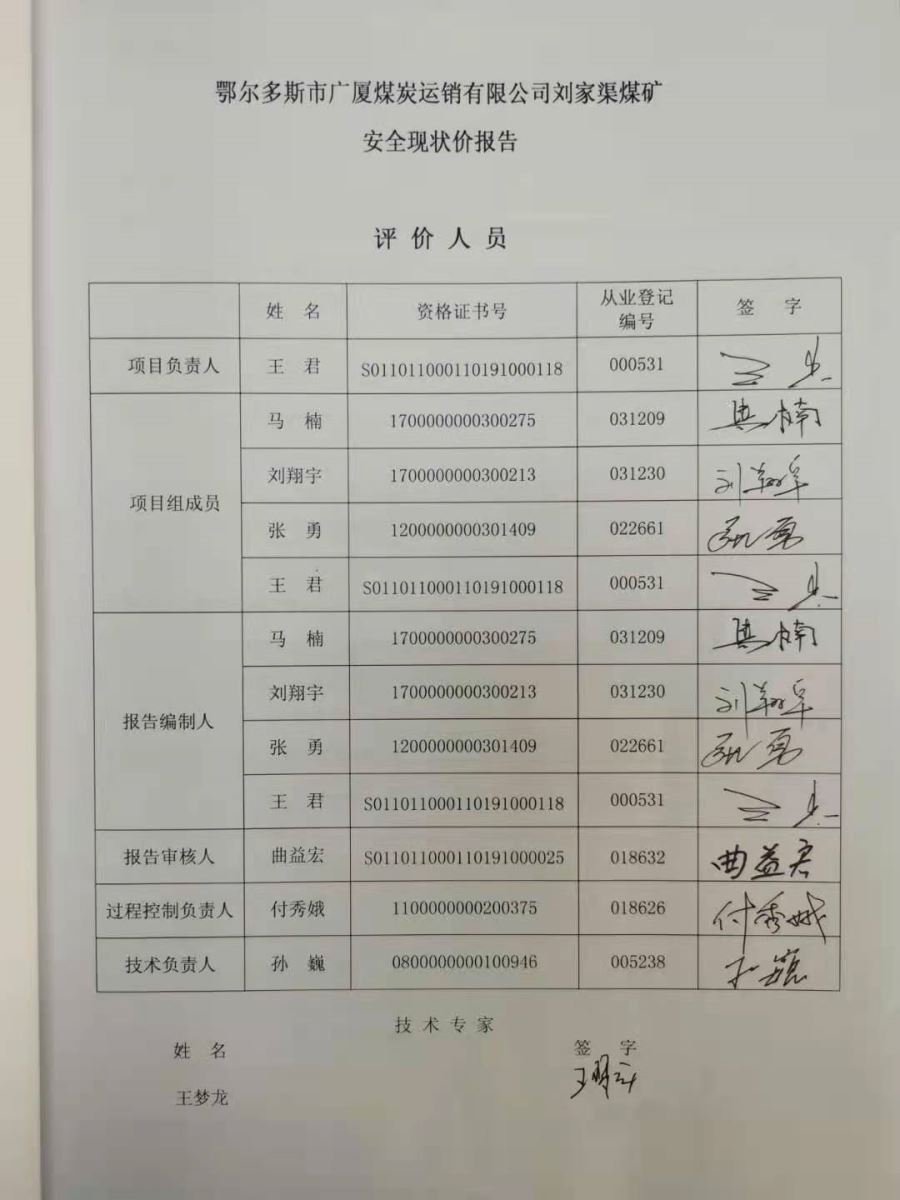 鄂尔多斯市广厦煤炭运销有限公司刘家渠煤矿
安全现状价报告
评价人员
姓名 资格证书号 从业登记编号 签字
项目负责人 王君 S011011000110191000118 000531 王君
项目组成员 马楠 1700000000300275 031209 马楠
刘翔宇 1700000000300213 031230 刘翔宇
张勇 1200000000301409 022661 张勇
王君 S011011000110191000118 000531 王君
报告编制人 马楠 1700000000300275 031209 马楠
刘翔宇 1700000000300213 031230 刘翔宇
张勇 1200000000301409 022661 张勇
王君 S011011000110191000118 000531 王君
报告审核人 曲益宏 S011011000110191000025 018632 曲益
过程控制负责人 付秀娥 1100000000200375 018626 付秀娥
技术负责人 孙巍 0800000000100946 005238 孙巍
技术专家
姓名 签字
王梦龙